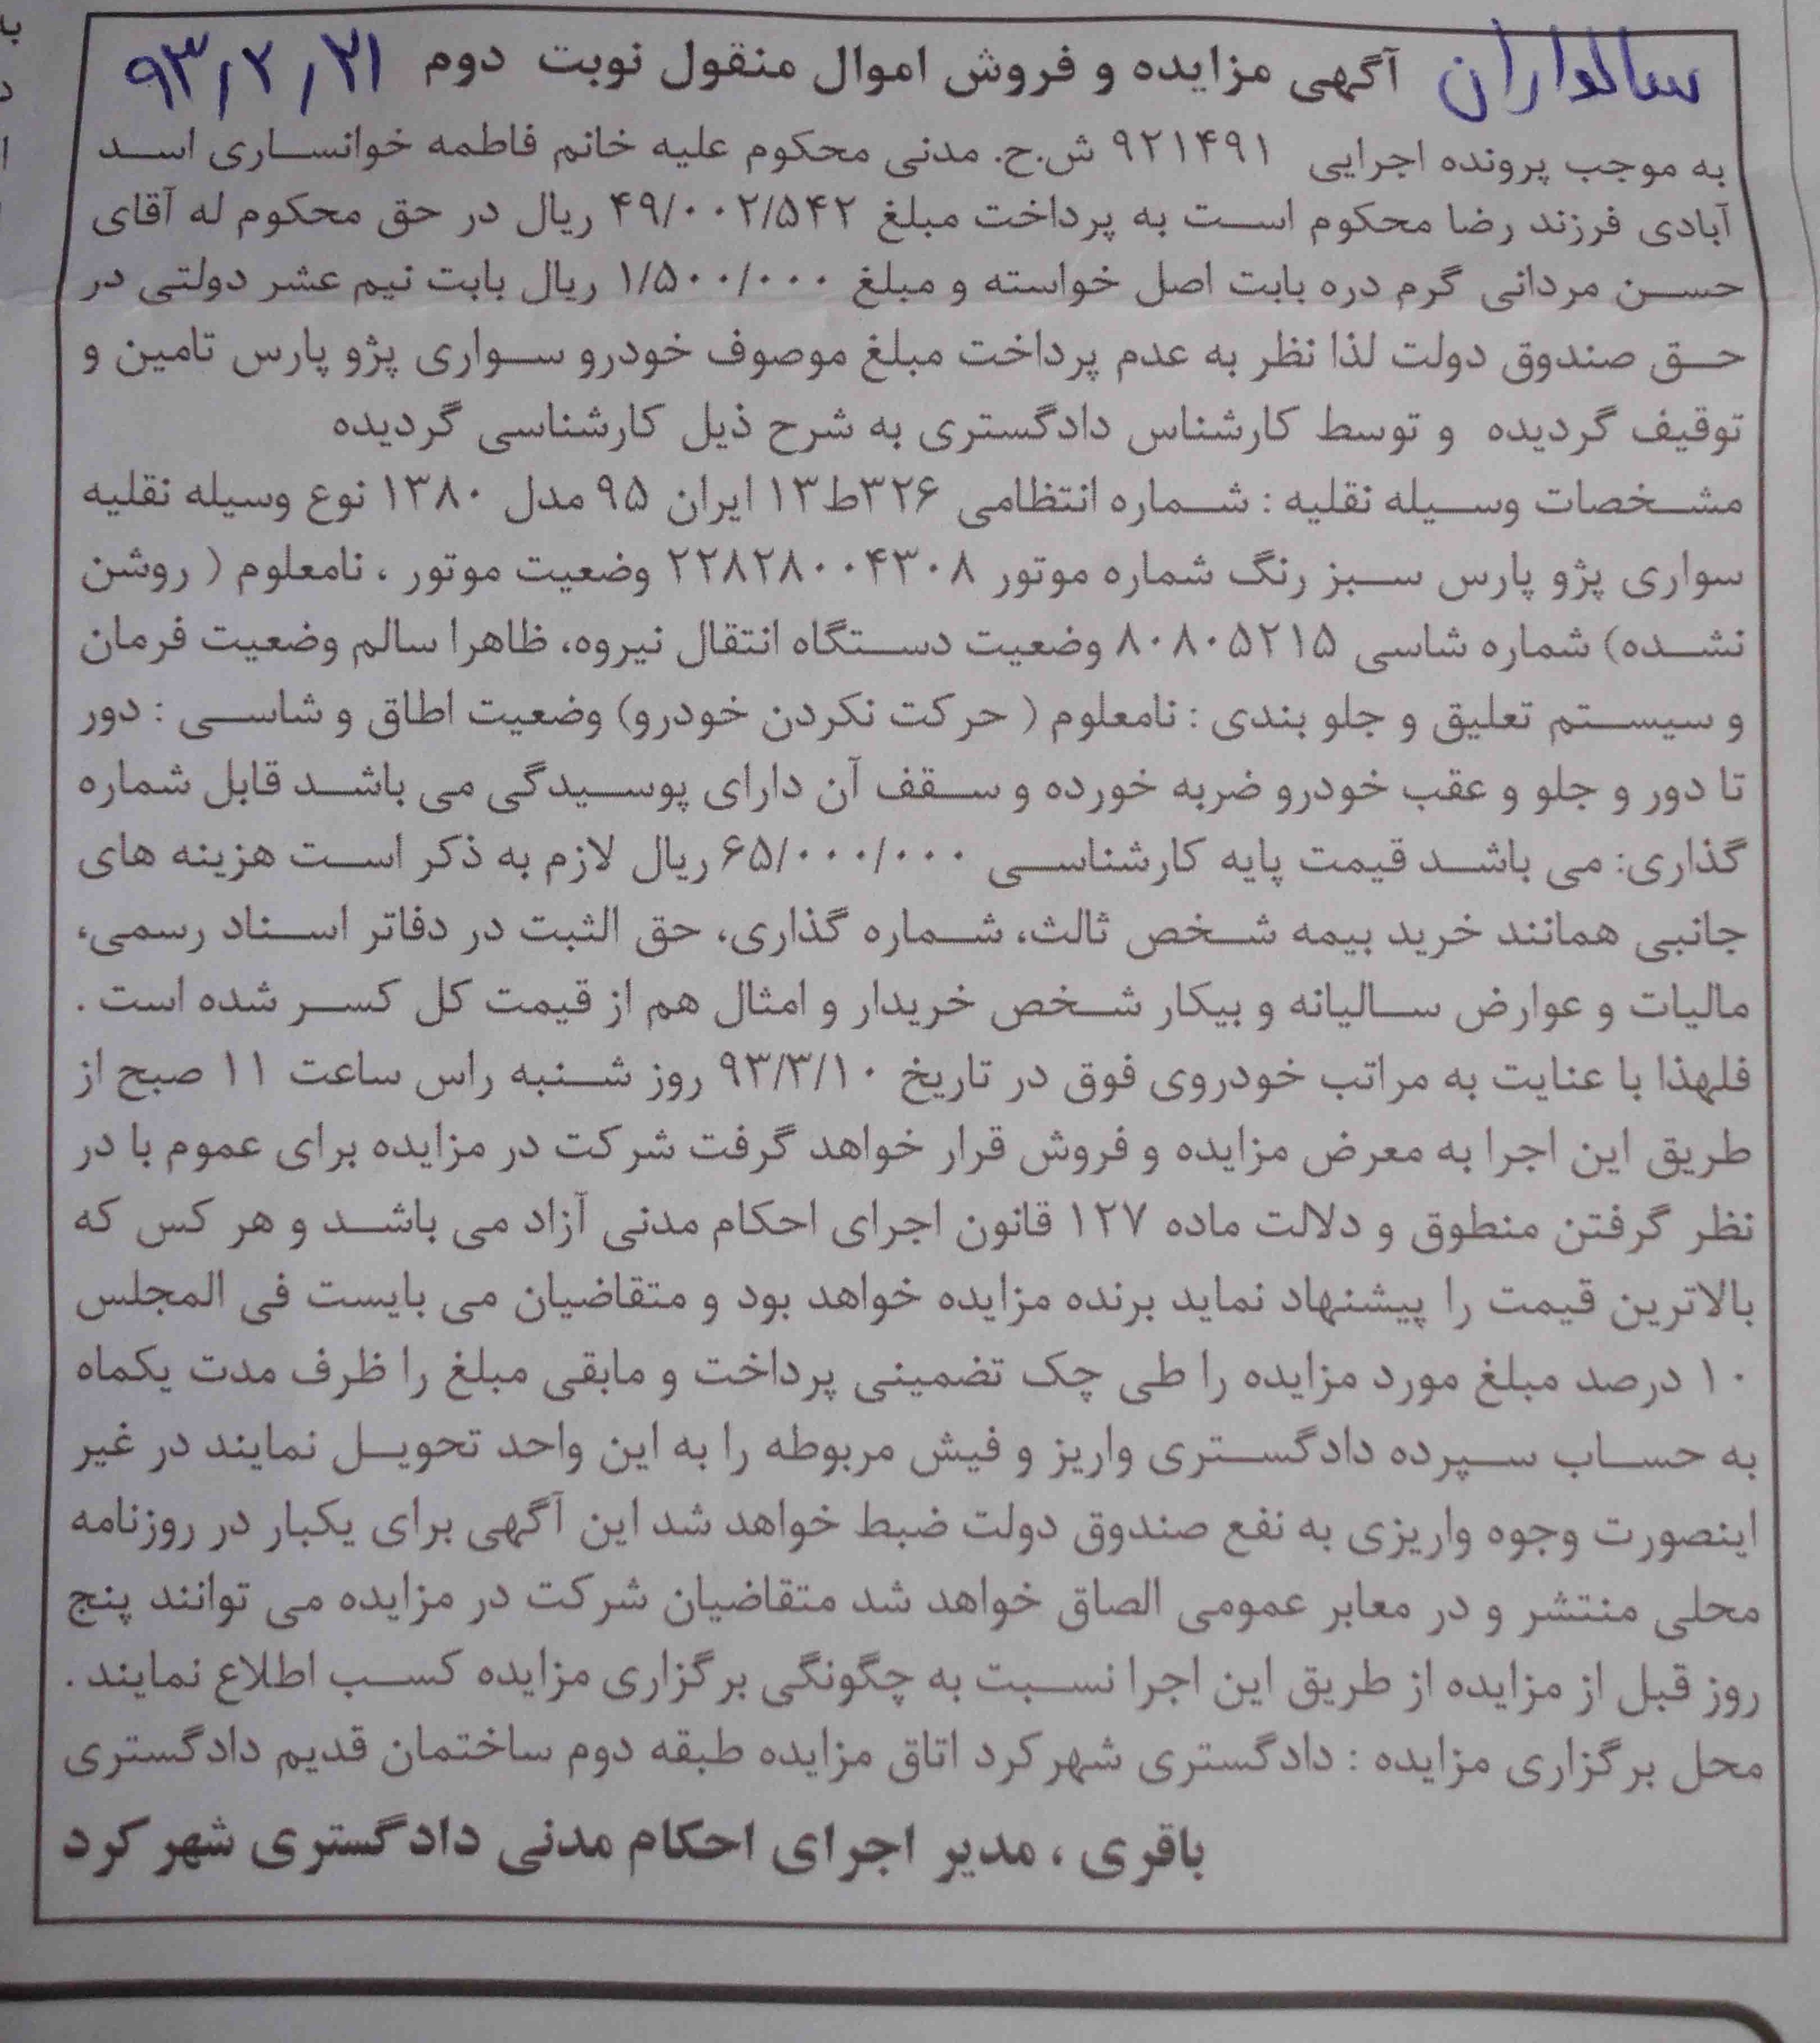 آگهی مزایده و فروش اموال منقول نوبت دوم ۹۳٫۲٫۲۱
به موجب پرونده اجرایی ۹۲۱۴۹۱ ش.ح. مدنی محکوم علیه خانم فاطمه خوانساری اسد
آبادی فرزند رضا محکوم است به پرداخت مبلغ ۴۹/۰۰۲/۵۴۲ ریال در حق محکوم له آقای
حسن مردانی گرم دره بابت اصل خواسته و مبلغ ۱/۵۰۰/۰۰۰ ریال بابت نیم عشر دولتی در
حق صندوق دولت لذا نظر به عدم پرداخت مبلغ موصوف خودرو سواری پژو پارس تامین و
توقیف گردیده و توسط کارشناس دادگستری به شرح ذیل کارشناسی گردیده
مشخصات وسیله نقلیه : شماره انتظامی ۳۲۶ط۱۳ ایران ۹۵ مدل ۱۳۸۰ نوع وسیله نقلیه
سواری پژو پارس سبز رنگ شماره موتور ۲۲۸۲۸۰۰۴۳۰۸ وضعیت موتور ، نامعلوم ( روشن
نشده) شماره شاسی ۸۰۸۰۵۲۱۵ وضعیت دستگاه انتقال نیروه، ظاهرا سالم وضعیت فرمان
و سیستم تعلیق و جلو بندی : نامعلوم ( حرکت نکردن خودرو) وضعیت اطاق و شاسی : دور
تا دور و جلو و عقب خودرو ضربه خورده و سقف آن دارای پوسیدگی می باشد قابل شماره
گذاری: می باشد قیمت پایه کارشناسی ۶۵/۰۰۰/۰۰۰ ریال لازم به ذکر است هزینه های
جانبی همانند خرید بیمه شخص ثالث، شماره گذاری، حق الثبت در دفاتر اسناد رسمی،
مالیات و عوارض سالیانه و بیکار شخص خریدار و امثال هم از قیمت کل کسر شده است .
فلهذا با عنایت به مراتب خودروی فوق در تاریخ ۹۳/۳/۱۰ روز شنبه راس ساعت ۱۱ صبح از
طریق این اجرا به معرض مزایده و فروش قرار خواهد گرفت شرکت در مزایده برای عموم با در
نظر گرفتن منطوق و دلالت ماده ۱۲۷ قانون اجرای احکام مدنی آزاد می باشد و هر کس که
بالاترین قیمت را پیشنهاد نماید برنده مزایده خواهد بود و متقاضیان می بایست فی المجلس
۱۰ درصد مبلغ مورد مزایده را طی چک تضمینی پرداخت و مابقی مبلغ را ظرف مدت یکماه
به حساب سپرده دادگستری واریز و فیش مربوطه را به این واحد تحویل نمایند در غیر
اینصورت وجوه واریزی به نفع صندوق دولت ضبط خواهد شد این آگهی برای یکبار در روزنامه
محلی منتشر و در معابر عمومی الصاق خواهد شد متقاضیان شرکت در مزایده می توانند پنج
روز قبل از مزایده از طریق این اجرا نسبت به چگونگی برگزاری مزایده کسب اطلاع نمایند .
محل برگزاری مزایده : دادگستری شهرکرد اتاق مزایده طبقه دوم ساختمان قدیم دادگستری
باقری ، مدیر اجرای احکام مدنی دادگستری شهر کرد